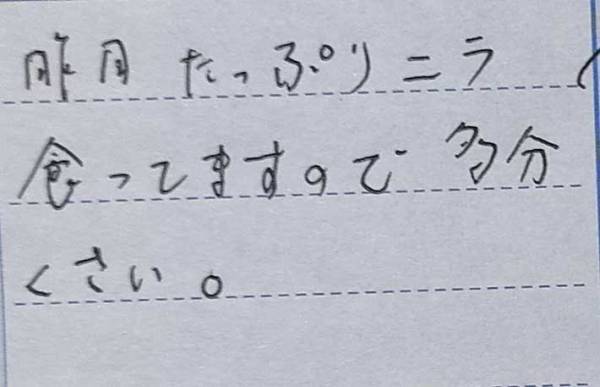 昨日 たっぷりニラ
食ってますので 多分
くさい。